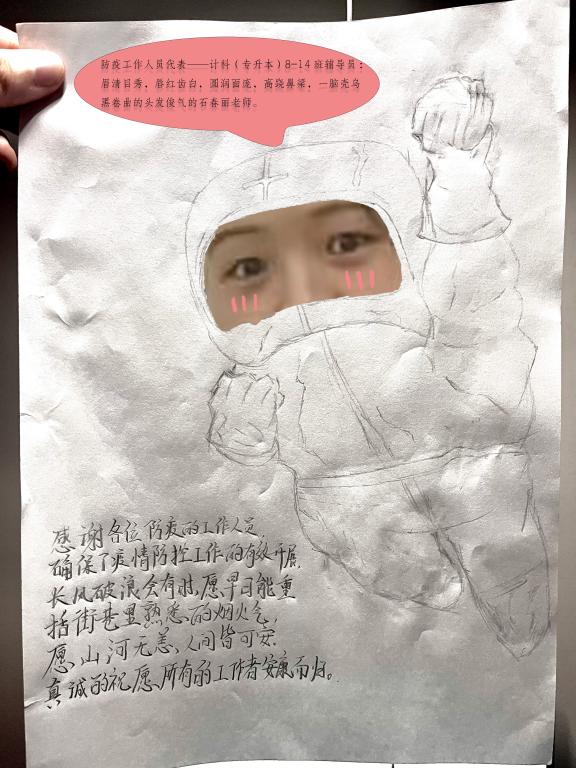 防疫工作人员代表——计科（专升本）8-14班辅导员：
眉清目秀，唇红齿白，圆润面庞，高挠鼻梁，一脑壳乌
黑卷曲的头发俊气的石春丽老师。
感谢各位防疫的工作人员，
确保了疫情防控工作的有效开展，
长风破浪会有时，愿早日能重
拾街巷里熟悉的烟火气，
愿，山河无恙，人间皆可安
真诚的祝愿所有的工作者安康而归。